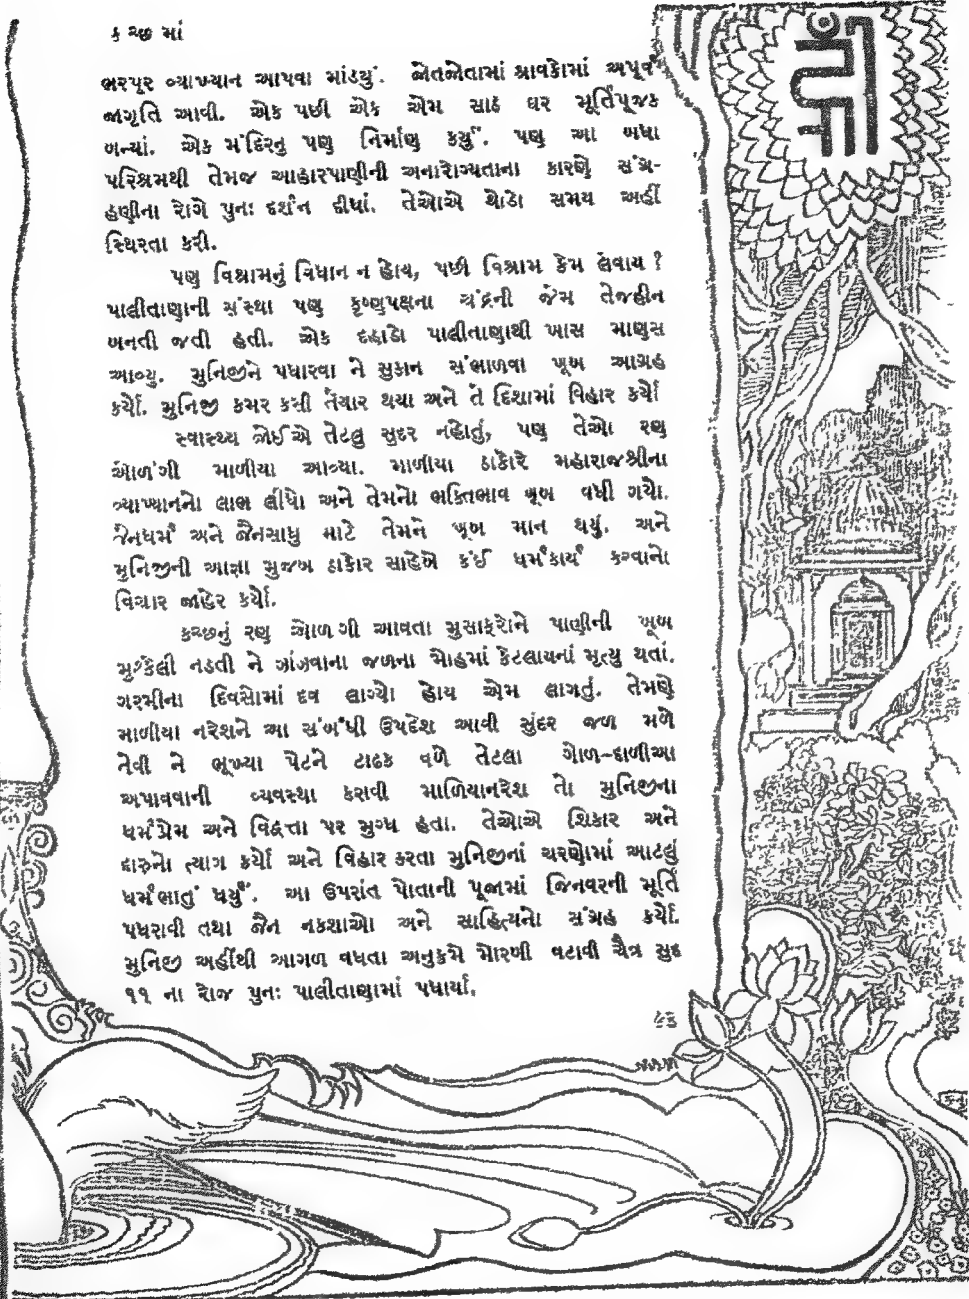 કચ્છ માં
ભરપૂર વ્યાખ્યાન આપવા માંડયું. જોતજોતામાં શ્રાવકોમાં અપૂર્વ
જાગૃતિ આવી. એક પછી એક એમ સાઠ ઘર મૂર્તિપૂજક
બન્યાં. એક મંદિરનુ પણ નિર્માણ કર્યું. પણ આ બધા
પરિશ્રમથી તેમજ આહારપાણીની અનારોગ્યતાના કારણે સંગ્ર-
હણીના રોગે પુનઃ દર્શન દીધાં. તેઓએ થોડો સમય અહીં
સ્થિરતા કરી.
પણ વિશ્રામનું વિધાન ન હોય, પછી વિશ્રામ કેમ લેવાય ?
પાલીતાણાની સંસ્થા પણ કૃષ્ણપક્ષના ચંદ્રની જેમ તેજહીન
બનતી જતી હતી. એક દહાડો પાલીતાણાથી ખાસ માણસ
આવ્યુ. મુનિજીને પધારવા ને સુકાન સંભાળવા ખૂબ આગ્રહ
કર્યો. મુનિજી કમર કસી તૈયાર થયા અને તે દિશામાં વિહાર કર્યો
સ્વાસ્થ્ય જોઈએ તેટલુ સુદર નહોતું, પણ તેઓ રણ
ઓળંગી માળીયા આવ્યા. માળીયા ઠાકોરે મહારાજશ્રીના
વ્યાખ્યાનનો લાભ લીધો અને તેમનો ભક્તિભાવ ખૂબ વધી ગયો.
જૈનધર્મ અને જૈનસાધુ માટે તેમને ખૂબ માન થયું. અને
મુનિજીની આજ્ઞા મુજબ ઠાકોર સાહેબે કંઈ ધર્મકાર્ય કરવાનો
વિચાર જાહેર કર્યો.
કચ્છનું રણ ઓળગી આવતા મુસાફરોને પાણીની ખૂબ
મુશ્કેલી નડતી ને ઝાંઝવાના જળના મોહમાં કેટલાયનાં મૃત્યુ થતાં.
ગરમીના દિવસોમાં દવ લાગ્યો હોય એમ લાગતું. તેમણે
માળીયા નરેશને આ સંબંધી ઉપદેશ આવી સુંદર જળ મળે
તેવી ને ભૂખ્યા પેટને ટાઢક વળે તેટલા ગોળ-દાળીઆ
અપાવવાની વ્યવસ્થા કરાવી માળિયાનરેશ તો મુનિજીના
ધર્મપ્રેમ અને વિદ્વત્તા પર મુગ્ધ હતા. તેઓએ શિકાર અને
દારુનો ત્યાગ કર્યો અને વિહાર કરતા મુનિજીનાં ચરણોમાં આટલું
ધર્મભાતું ધર્યું. આ ઉપરાંત પોતાની પૂજામાં જિનવરની મૂર્તિ
પધરાવી તથા જૈન નકશાઓ અને સાહિત્યનો સંગ્રહ કર્યો.
મુનિજી અહીંથી આગળ વધતા અનુક્રમે મોરબી વટાવી ચૈત્ર સુદ
૧૧ ના રોજ પુનઃ પાલીતાણામાં પધાર્યા.